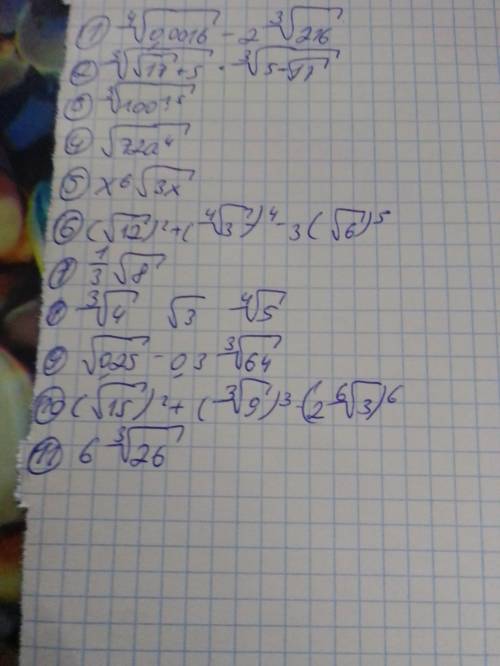 ① ⁴√0,0016 - 2 ³√216
② ³√(√17 + 5) · ³√(5 - √17)
③
④ √(72a⁴)
⑤ x⁶√(3x)
⑥ (√12)² + (⁴√3)⁴ - 3(√6)⁵
⑦ 1/3 √8
⑧ ³√4 √3 ⁴√5
⑨ √0,25 - 0,3 ³√64
⑩ (√15)² + (³√9)³ - (2 ⁶√3)⁶
⑪ 6 ³√26